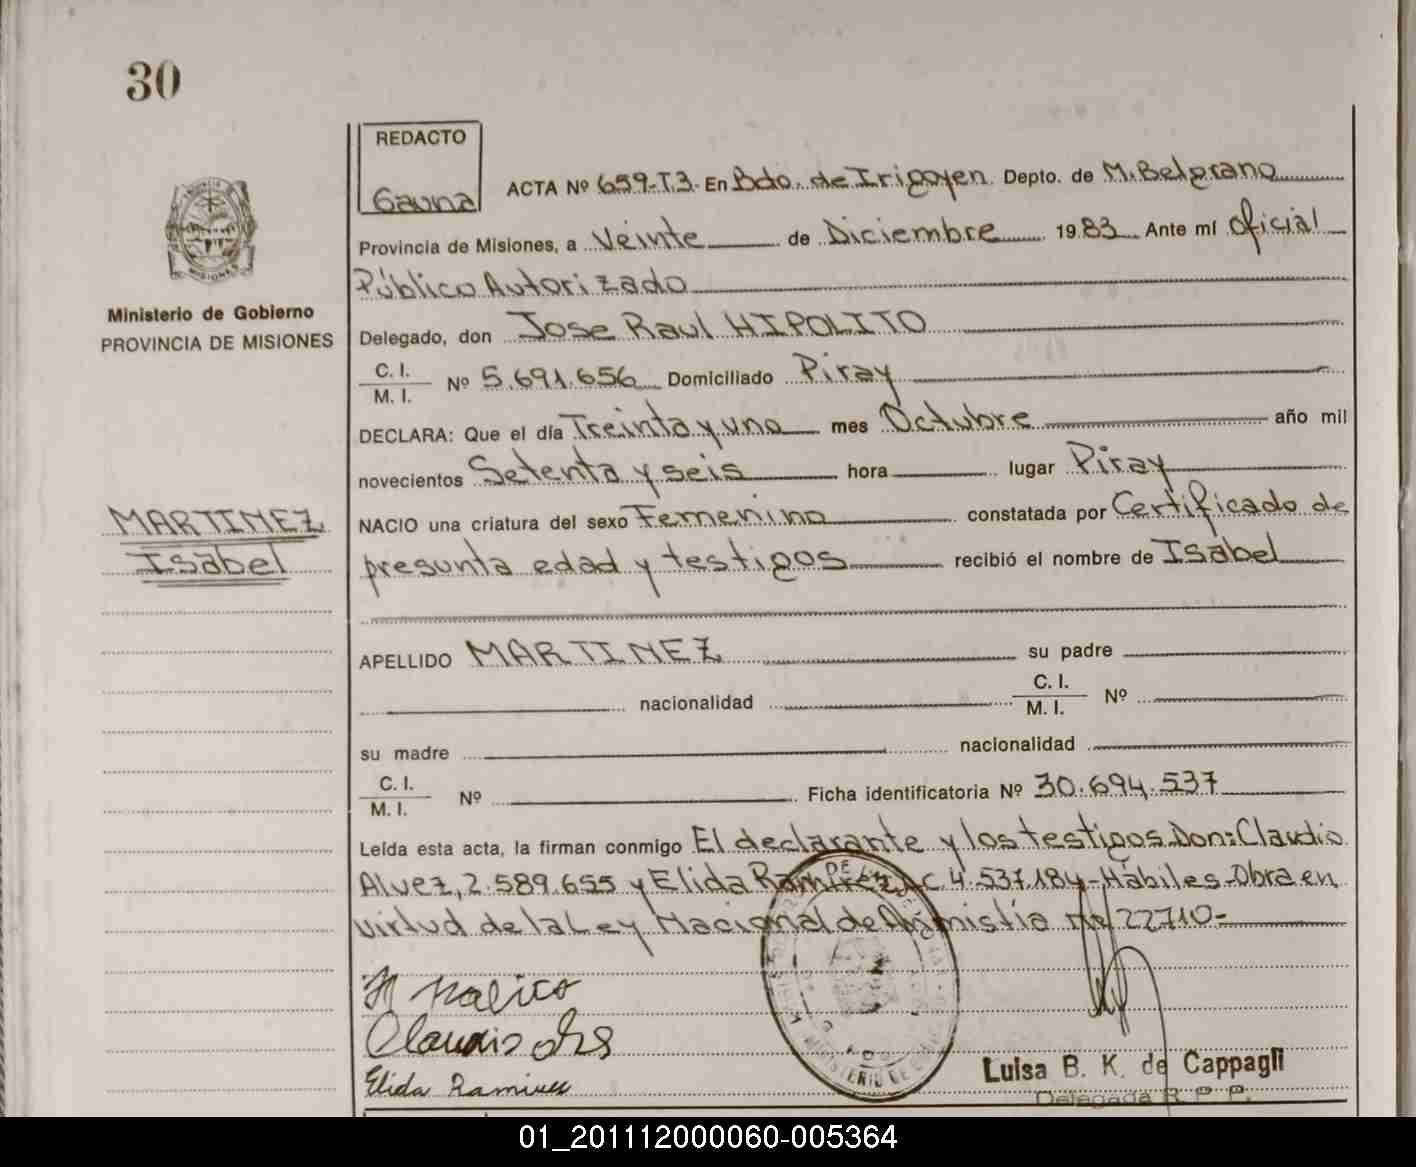 30
REDACTO
Gauna
ACTA Nº 659-T.3. En Bdo. de Irigoyen. Depto. de M. Belgrano
Provincia de Misiones, a Veinte de Diciembre 1983 Ante mí Oficial
Público Autorizado
Ministerio de Gobierno
PROVINCIA DE MISIONES
Delegado, don Jose Raul HIPOLITO
C. I.
M. I. Nº 5.691.656 Domiciliado Piray
DECLARA: Que el día Treinta y uno mes Octubre año mil
novecientos Setenta y seis hora lugar Piray
MARTINEZ
Isabel
NACIO una criatura del sexo Femenino constatada por Certificado de
presunta edad y testigos recibió el nombre de Isabel
APELLIDO MARTINEZ su padre
nacionalidad C. I.
M. I. Nº
su madre nacionalidad
C. I.
M. I. Nº Ficha identificatoria Nº 30.694.537
Leída esta acta, la firman conmigo El declarante y los testigos Don: Claudio
Alvez, 2.589.655 y Elida Ramirez, L.C. 4.537.184-Hábiles-Obra en
virtud de la Ley Nacional de Amnistía Nº 22710-
Claudio
Elida Ramirez
Luisa B. K. de Cappagli
Delegada R. P. P.
01_201112000060-005364